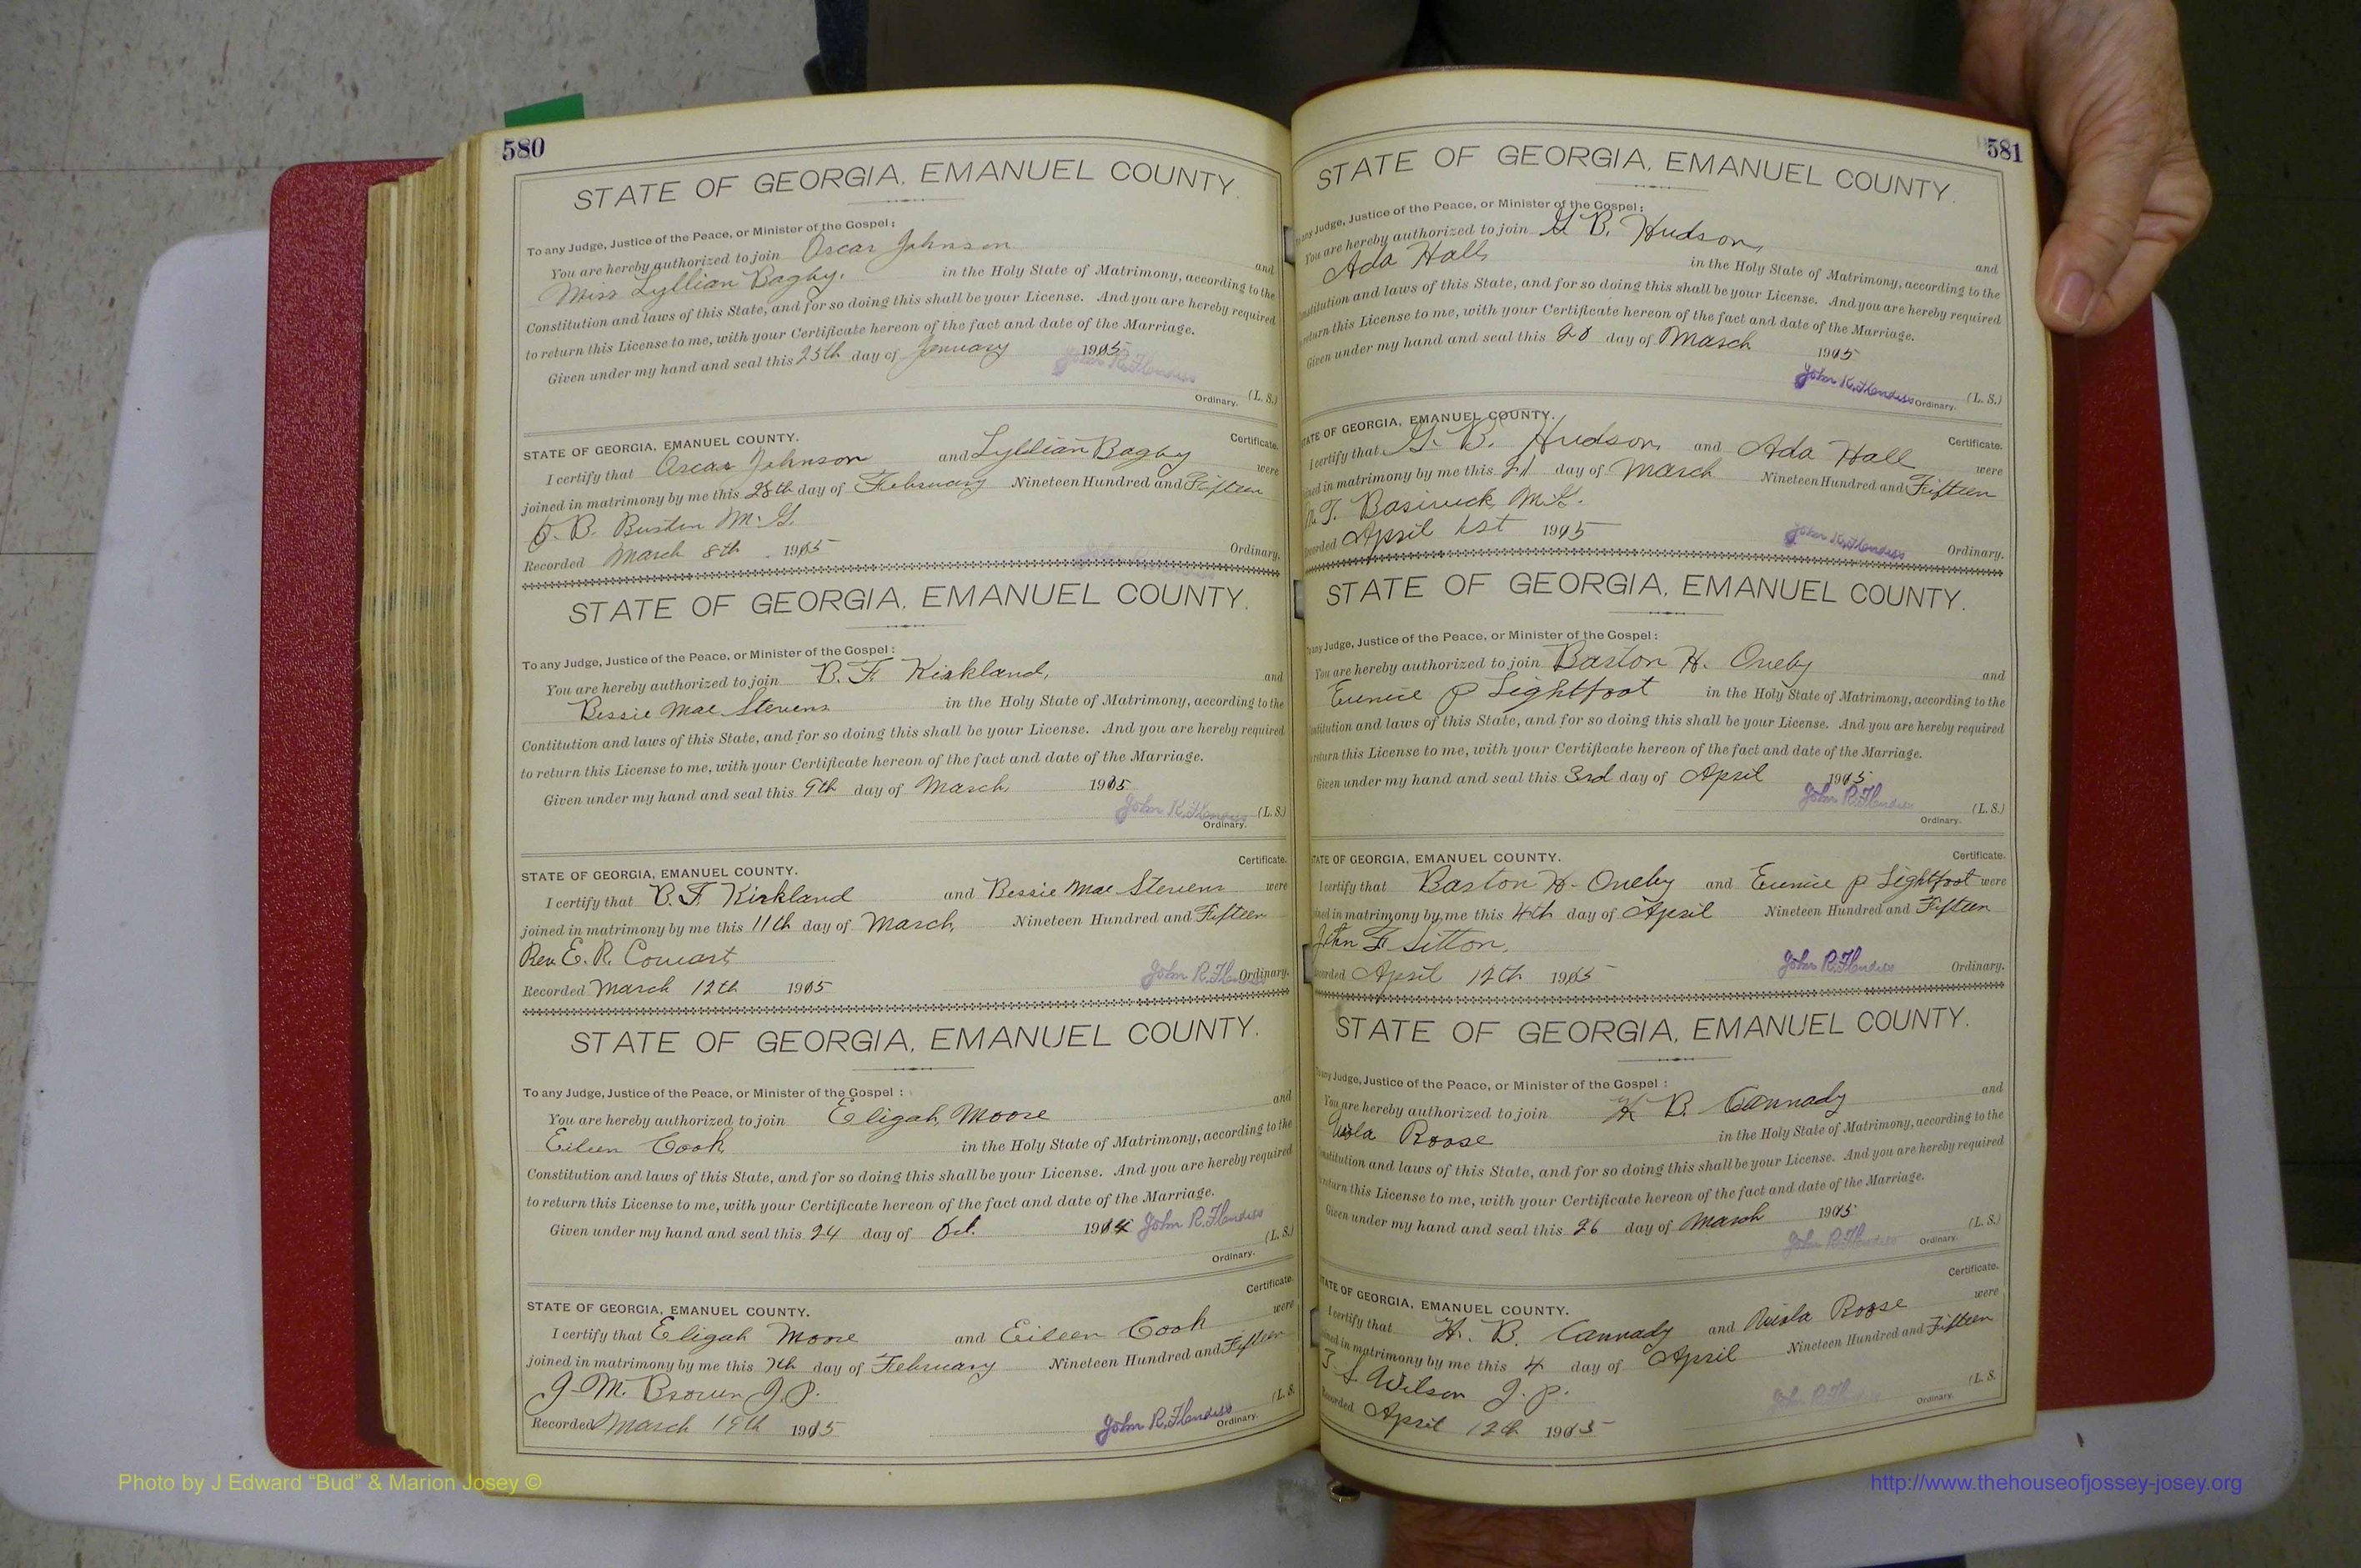 580
STATE OF GEORGIA, EMANUEL COUNTY.
To any Judge, Justice of the Peace, or Minister of the Gospel:
You are hereby authorized to join Oscar Johnson and
Miss Lyllian Bagby. in the Holy State of Matrimony, according to the
Constitution and laws of this State, and for so doing this shall be your License. And you are hereby required
to return this License to me, with your Certificate hereon of the fact and date of the Marriage.
Given under my hand and seal this 25th day of January 1915
Ordinary. (L. S.)
Certificate.
STATE OF GEORGIA, EMANUEL COUNTY.
I certify that Oscar Johnson and Lyllian Bagby were
joined in matrimony by me this 28th day of February Nineteen Hundred and Fifteen
B. M. G.
Recorded March 8th 1915 Ordinary.
STATE OF GEORGIA, EMANUEL COUNTY.
To any Judge, Justice of the Peace, or Minister of the Gospel:
You are hereby authorized to join B. F. Kirkland, and
Bessie Mae Stevens in the Holy State of Matrimony, according to the
Contitution and laws of this State, and for so doing this shall be your License. And you are hereby required
to return this License to me, with your Certificate hereon of the fact and date of the Marriage.
Given under my hand and seal this 9th day of March, 1915
John R. (L. S.)
Ordinary.
Certificate.
STATE OF GEORGIA, EMANUEL COUNTY.
I certify that B. F. Kirkland and Bessie Mae Stevens were
joined in matrimony by me this 11th day of March, Nineteen Hundred and Fifteen
Rev. E. R. Cowart
John R. Ordinary.
Recorded March 12th 1915
STATE OF GEORGIA, EMANUEL COUNTY.
To any Judge, Justice of the Peace, or Minister of the Gospel:
You are hereby authorized to join Eligah Moore and
Eileen Cook in the Holy State of Matrimony, according to the
Constitution and laws of this State, and for so doing this shall be your License. And you are hereby required
to return this License to me, with your Certificate hereon of the fact and date of the Marriage.
Given under my hand and seal this 24 day of Oct. 1914 John R.
(L. S.)
Ordinary.
Certificate.
STATE OF GEORGIA, EMANUEL COUNTY.
I certify that Eligah Moore and Eileen Cook were
joined in matrimony by me this 7th day of February Nineteen Hundred and Fifteen
J. M. Brown J. P.
Recorded March 19th 1915 John R. Ordinary. (L. S.
581
STATE OF GEORGIA, EMANUEL COUNTY.
any Judge, Justice of the Peace, or Minister of the Gospel:
You are hereby authorized to join G B. Hudson, and
Ada Hall in the Holy State of Matrimony, according to the
nstitution and laws of this State, and for so doing this shall be your License. And you are hereby required
return this License to me, with your Certificate hereon of the fact and date of the Marriage.
Given under my hand and seal this 20 day of March 1915
John R. Ordinary. (L. S.)
TATE OF GEORGIA, EMANUEL COUNTY.
Certificate.
I certify that G. B. Hudson, and Ada Hall were
ined in matrimony by me this 21 day of March Nineteen Hundred and Fifteen
M. G.
corded April 1st 1915 John R. Ordinary.
STATE OF GEORGIA, EMANUEL COUNTY.
any Judge, Justice of the Peace, or Minister of the Gospel:
You are hereby authorized to join Baston H. Oneby and
Eunice P Lightfoot in the Holy State of Matrimony, according to the
nstitution and laws of this State, and for so doing this shall be your License. And you are hereby required
return this License to me, with your Certificate hereon of the fact and date of the Marriage.
Given under my hand and seal this 3rd day of April 1915
John R. (L. S.)
Ordinary.
Certificate.
TATE OF GEORGIA, EMANUEL COUNTY.
I certify that Baston H. Oneby and Eunice P Lightfoot were
ined in matrimony by me this 4th day of April Nineteen Hundred and Fifteen
John F. Sitton,
corded April 12th 1915 John R. Ordinary.
STATE OF GEORGIA, EMANUEL COUNTY.
any Judge, Justice of the Peace, or Minister of the Gospel:
You are hereby authorized to join H B. Cannady and
Roose in the Holy State of Matrimony, according to the
nstitution and laws of this State, and for so doing this shall be your License. And you are hereby required
return this License to me, with your Certificate hereon of the fact and date of the Marriage.
Given under my hand and seal this 26 day of March 1915
John R. Ordinary. (L. S.)
Certificate.
STATE OF GEORGIA, EMANUEL COUNTY.
I certify that H. B. Cannady and Roose were
ined in matrimony by me this 4 day of April Nineteen Hundred and Fifteen
Wilson J. P.
corded April 12th 1915 John R. Ordinary. (L. S.
Photo by J Edward “Bud” & Marion Josey ©
http://www.thehouseofjossey-josey.org